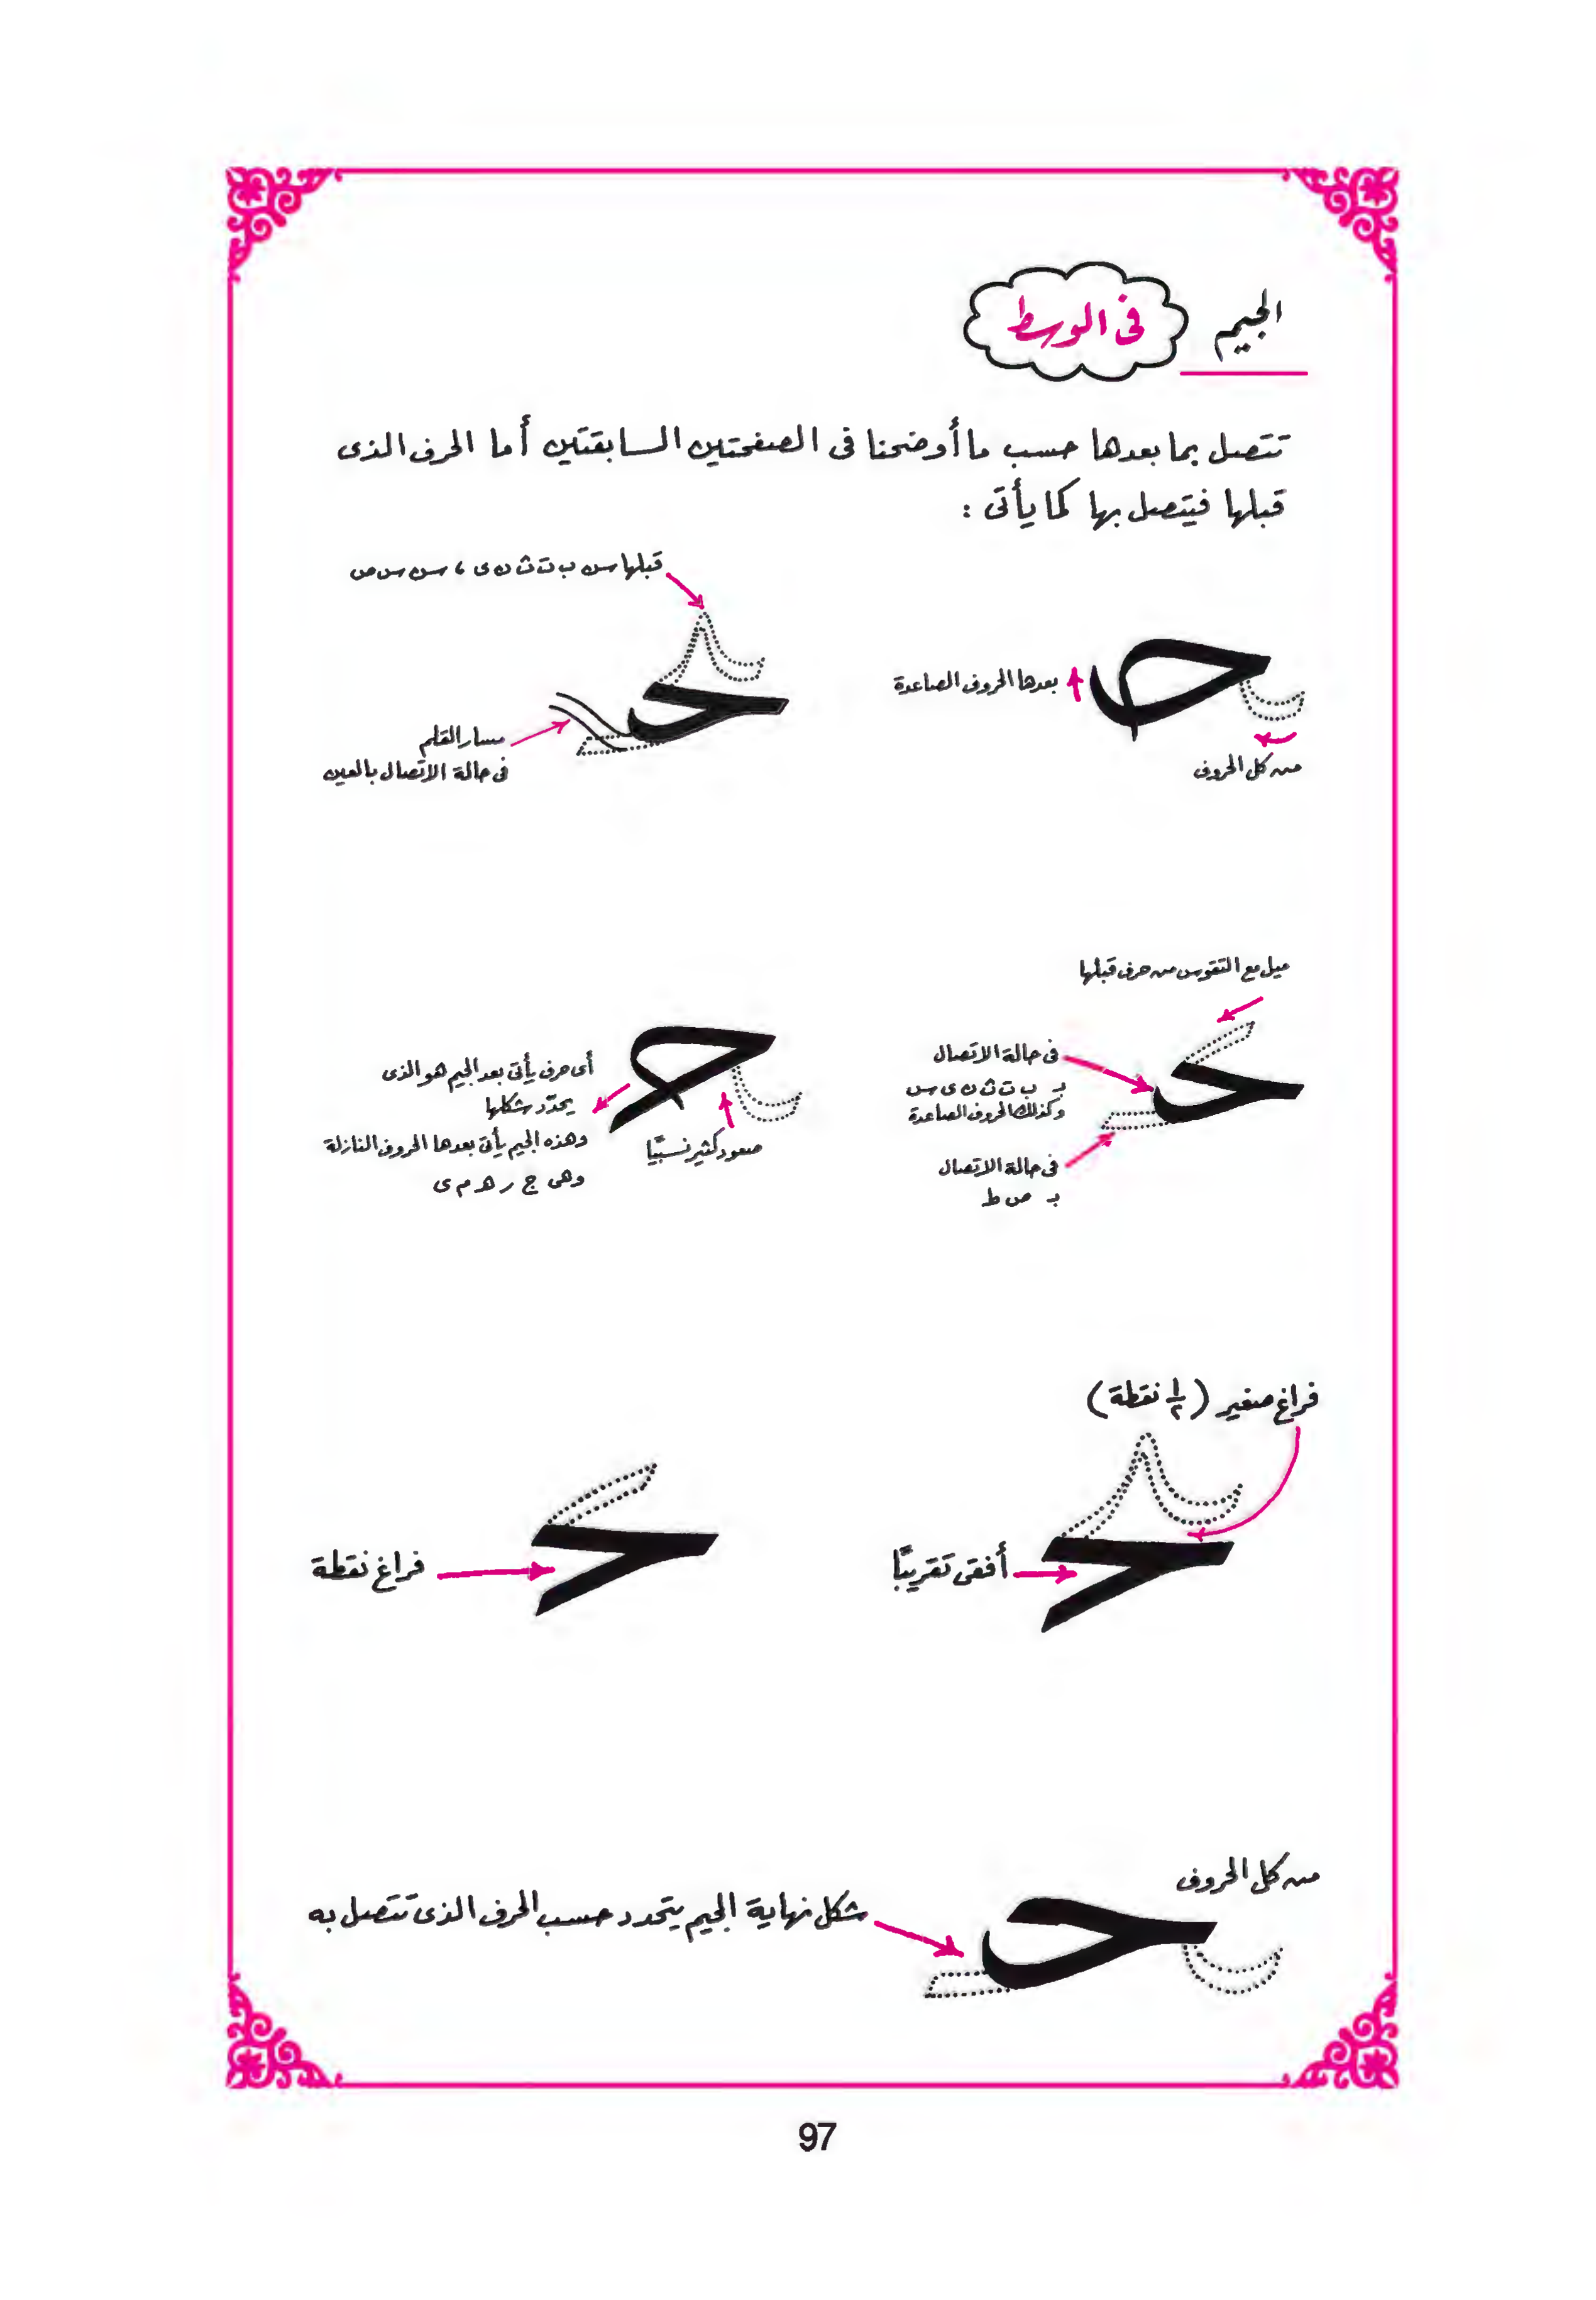 الجيم فى الوسط
تتصل بما بعدها حسب ما أوضحنا فى الصفحتين السابقتين أما الحرف الذى
قبلها فيتصل بها كما يأتى :
قبلها سن ب ت ث ن ى ، سن س ص
بعدها الحروف الصاعدة
من كل الحروف
مسار القلم
فى حالة الاتصال بالعين
ميل مع التقوس من حرف قبلها
فى حالة الاتصال
بـ ب ت ث ن ى س
وكذلك الحروف الصاعدة
فى حالة الاتصال
بـ ص ط
أى حرف يأتى بعد الجيم هو الذى
يحدّد شكلها
وهذه الجيم يأتى بعدها الحروف النازلة
وهى ج ر هـ م ى
صعود كثير نسبيًا
فراغ صغير (١/٢ نقطة)
أفقى تقريبًا
فراغ نقطة
من كل الحروف
شكل نهاية الجيم يتحدد حسب الحرف الذى تتصل به
97